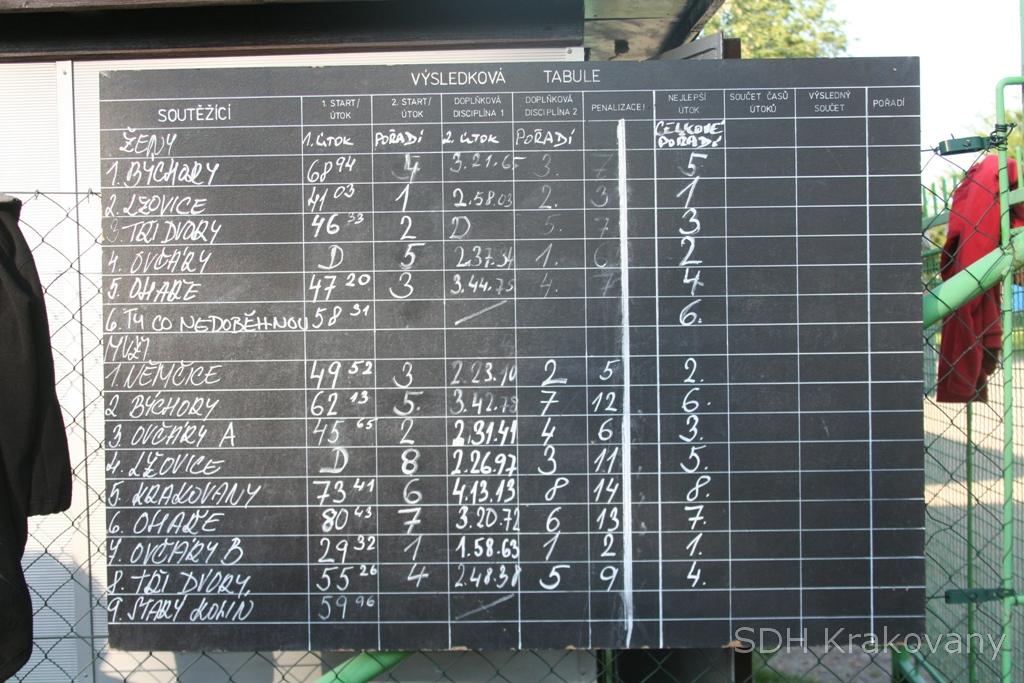 VÝSLEDKOVÁ TABULE
SOUTĚŽÍCÍ 1. START/ ÚTOK 2. START/ ÚTOK DOPLŇKOVÁ DISCIPLÍNA 1 DOPLŇKOVÁ DISCIPLÍNA 2 PENALIZACE! NEJLEPŠÍ ÚTOK SOUČET ČASŮ ÚTOKŮ VÝSLEDNÝ SOUČET POŘADÍ
ŽENY 1. ÚTOK POŘADÍ 2. ÚTOK POŘADÍ CELKOVÉ POŘADÍ
1. BÝCHORY 68 94 4 3.21.65 3. 7 5
2. LŽOVICE 41 03 1 2.58.03 2. 3 1
3. TŘI DVORY 46 33 2 D 5. 7 3
4. OVČÁRY D 5 2.37.54 1. 6 2
5. OHAŘE 47 20 3 3.44.75 4. 7 4
6. TY CO NEDOBĚHNOU 58 31 6.
MUŽI
1. NĚMČICE 49 52 3 2.23.10 2 5 2.
2 BÝCHORY 62 13 5. 3.42.75 7 12 6.
3. OVČÁRY A 45 65 2 2.31.41 4 6 3.
4. LŽOVICE D 8 2.26.97 3 11 5.
5. KRAKOVANY 73 41 6 4.13.13 8 14 8.
6. OHAŘE 80 43 7 3.20.72 6 13 7.
7. OVČÁRY B 29 32 1 1.58.63 1 2 1.
8. TŘI DVORY. 55 26 4 2.48.38 5 9 4.
9. STARÝ KOLÍN 59 96
SDH Krakovany